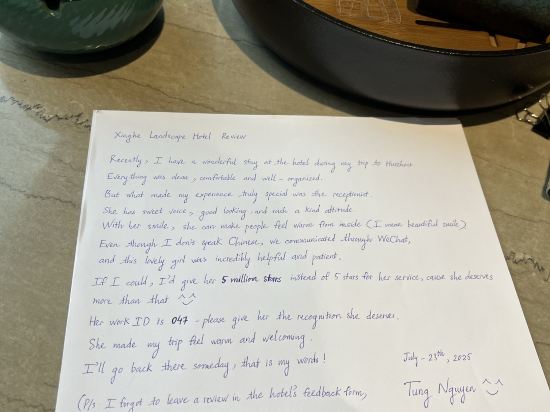 Xinghe Landscape Hotel Review
Recently, I have a wonderful stay at the hotel during my trip to Huizhou
Everything was clean, comfortable and well-organized.
But what made my experience truly special was the receptionist.
She has sweet voice, good looking, and such a kind attitude.
With her smile, she can make people feel warm from inside (I mean beautiful smile)
Even though I don't speak Chinese, we communicated through WeChat,
and this lovely girl was incredibly helpful and patient.
If I could, I'd give her 5 million stars instead of 5 stars for her service, cause she deserves
more than that ^^
Her work ID is 047 - please give her the recognition she deserves.
She made my trip feel warm and welcoming.
I'll go back there someday, that is my words!
July - 23th, 2025
(P/s: I forgot to leave a review in the hotel's feedback form,
Tung Nguyen ^^